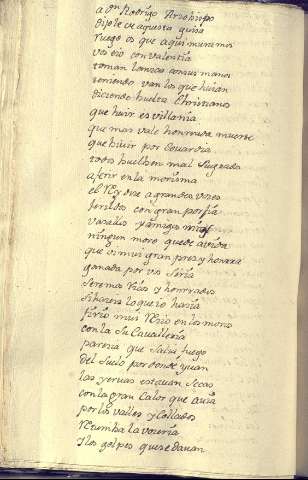 a don Rodrigo Arzobispo
dijole de aquesta guisa
ruego os que aqui muramos
vos e io con valentia
toman lanzas en sus manos
teniendo van los que huian
diciendo buelta Christianos
que huir es villania
que mas vale honrrada muerte
que biuir por Couardia
todos buelben mal Su grado
a ferir en la morisma
el Rey dice a grandes voces
ferildos con gran porfia
vasallos y amigos mios
ningun moro quede a vida
que vi mui gran prez y honrra
ganada por vos seria
seremos ricos y honrrados
si hoceis lo que io haria
firio mui recio en los moros
con la Su Cavalleria
parecia que Salia fuego
del Suelo por donde yuan
las yeruas estauan Secas
con la gran Calor que auia
por los valles y Collados
Retumba la voceria
I los golpes que se dauan